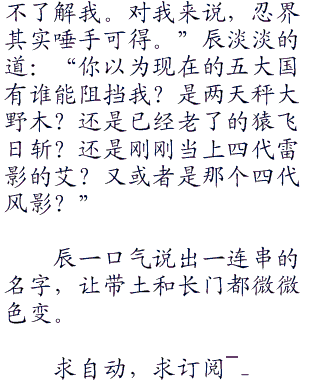 不了解我。对我来说，忍界
其实唾手可得。”辰淡淡的
道：“你以为现在的五大国
有谁能阻挡我？是两天秤大
野木？还是已经老了的猿飞
日斩？还是刚刚当上四代雷
影的艾？又或者是那个四代
风影？”
辰一口气说出一连串的
名字，让带土和长门都微微
色变。
求自动，求订阅¯_